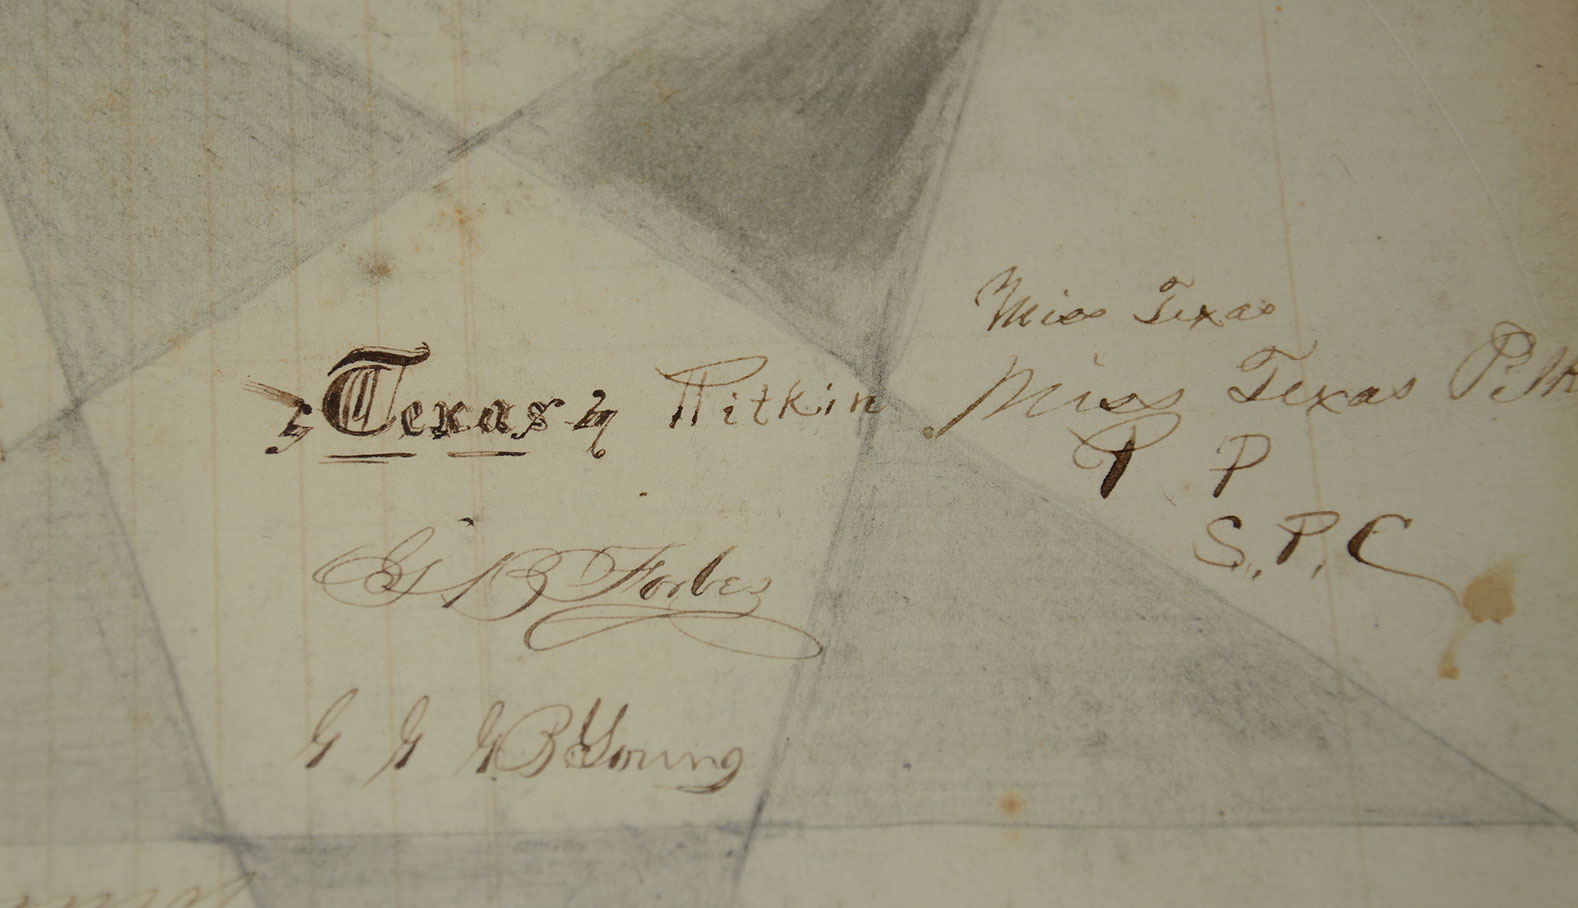 Texas Pitkin
Miss Texas
Miss Texas Pitk
P P
S. P. C
G B Forbes
G G G B Young